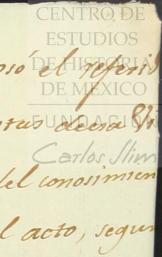 CENTRO DE
ESTUDIOS
DE HISTORIA
DE MEXICO
FUNDACIÓN
Carlos Slim
el referid
decia
del conosimien
l acto, segun